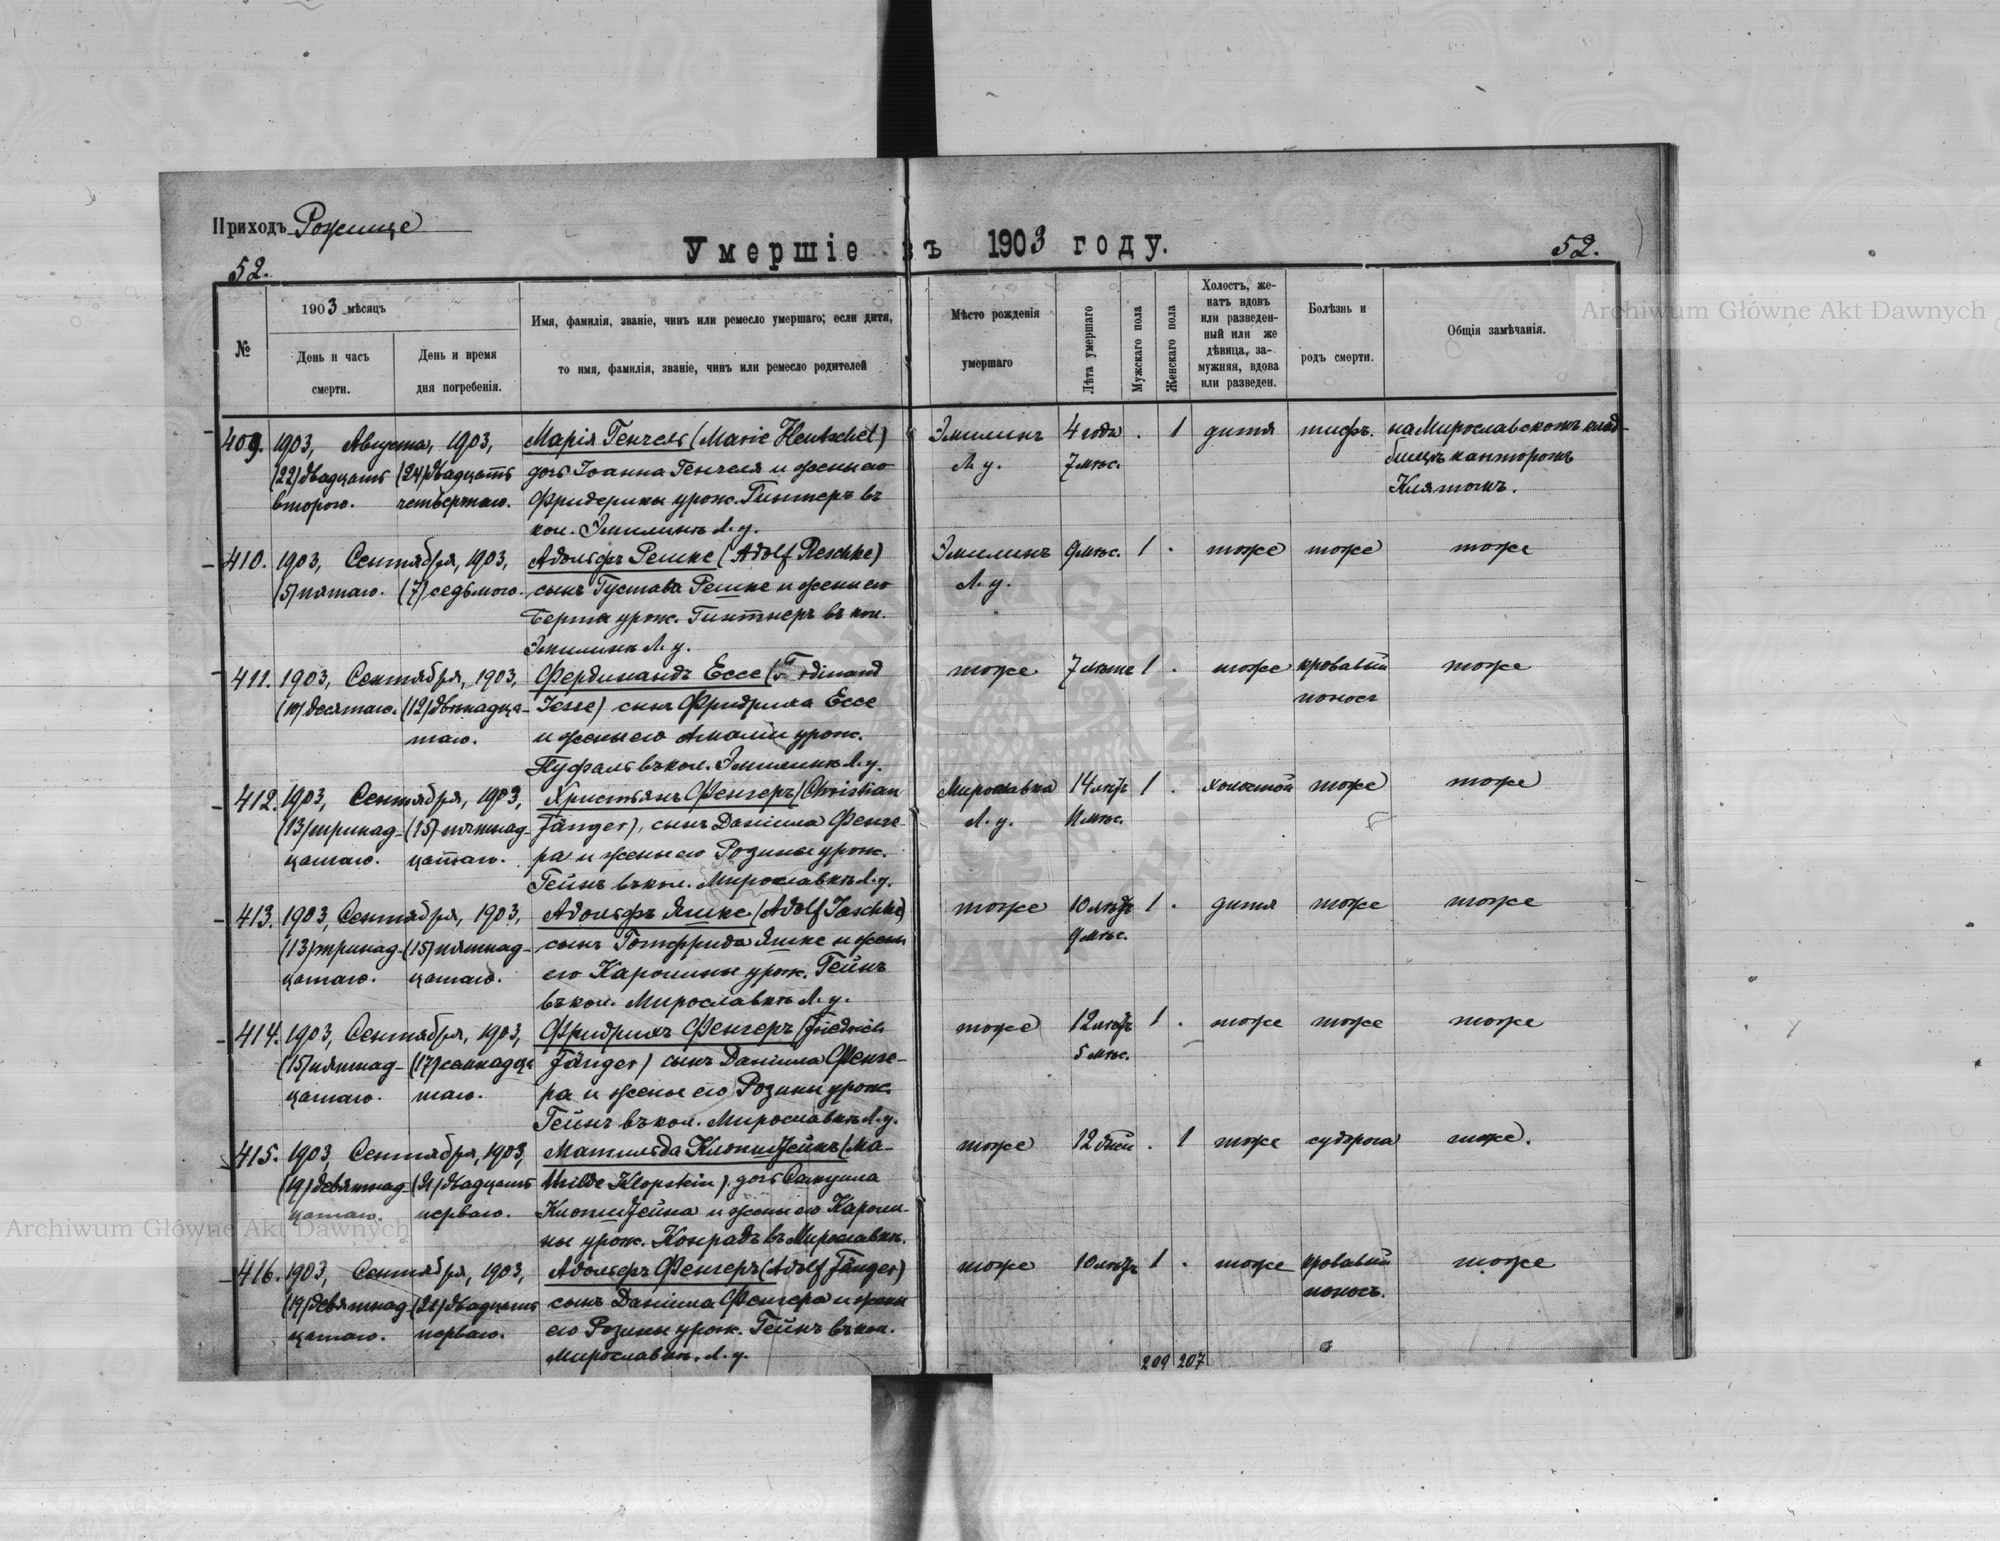 Приходъ Рожище
Умершіе въ 1903 году.
52.
52.
№
1903 мѣсяцъ
День и часъ
смерти.
День и время
дня погребенія.
Имя, фамилія, званіе, чинъ или ремесло умершаго; если дитя,
то имя, фамилія, званіе, чинъ или ремесло родителей
Мѣсто рожденія
умершаго
Лѣта умершаго
Мужскаго пола
Женскаго пола
Холостъ, же-
натъ вдовъ
или разведен-
ный или же
дѣвица, за-
мужняя, вдова
или разведен.
Болѣзнь и
родъ смерти.
Общія замѣчанія.
Archiwum Główne Akt Dawnych
409. 1903, Августа, 1903, Марія Генчель (Marie Hentschel) Эмилинъ 4 года . 1 дитя тифъ. на Мирославскомъ клад-
(22) двадцать (24) двадцать дочь Іоанна Генчеля и жены его Л. у. 7 мѣс. бищѣ канторомъ
второго. четвертаго. Фридерики урож. Гинтеръ въ Клятомъ.
кол. Эмилинѣ Л. у.
410. 1903, Сентября, 1903, Адольфъ Решке (Adolf Reschke) Эмилинъ 9 мѣс. 1 . тоже тоже тоже
(5) пятаго. (7) седьмого. сынъ Густава Решке и жены его Л. у.
Берты урож. Гинтнеръ въ кол.
Эмилинѣ Л. у.
411. 1903, Сентября, 1903, Фердинандъ Ессе (Ferdinand тоже 7 лѣтъ 1 . тоже кровавый тоже
(10) десятаго. (12) двѣнадца- Jesse) сынъ Фридриха Ессе поносъ
таго. и жены его Амаліи урож.
Пуфаль въ кол. Эмилинѣ Л. у.
412. 1903, Сентября, 1903, Христьянъ Фенгеръ (Christian Мирославка 14 лѣтъ 1 . холостой тоже тоже
(13) тринад- (15) пятнад- Fänger), сынъ Даніила Фенге- Л. у. 11 мѣс.
цатаго. цатаго. ра и жены его Розины урож.
Гейнъ въ кол. Мирославкѣ Л. у.
413. 1903, Сентября, 1903, Адольфъ Яшке (Adolf Jaschke) тоже 10 лѣтъ 1 . дитя тоже тоже
(13) тринад- (15) пятнад- сынъ Готфрида Яшке и жены 9 мѣс.
цатаго. цатаго. его Каролины урож. Гейнъ
въ кол. Мирославкѣ Л. у.
414. 1903, Сентября, 1903, Фридрихъ Фенгеръ (Friedrich тоже 12 лѣтъ 1 . тоже тоже тоже
(15) пятнад- (17) семнадца Fänger) сынъ Даніила Фенге- 5 мѣс.
цатаго. таго. ра и жены его Розины урож.
Гейнъ въ кол. Мирославкѣ Л. у.
415. 1903, Сентября, 1903, Матильда Клопштейнъ (Ma- тоже 12 дней . 1 тоже судорога тоже.
(19) девятнад (21) двадцать thilde Klopstein), дочь Самуила
цатаго. перваго. Клопштейна и жены его Кароли-
ны урож. Конрадъ въ Мирославкѣ.
Archiwum Główne Akt Dawnych
416. 1903, Сентября, 1903, Адольфъ Фенгеръ (Adolf Fänger) тоже 10 лѣтъ 1 . тоже кровавый тоже
(19) девятнад (21) двадцать сынъ Даніила Фенгера и жены поносъ.
цатаго. перваго. его Розины урож. Гейнъ въ кол.
Мирославкѣ, Л. у.
209 207